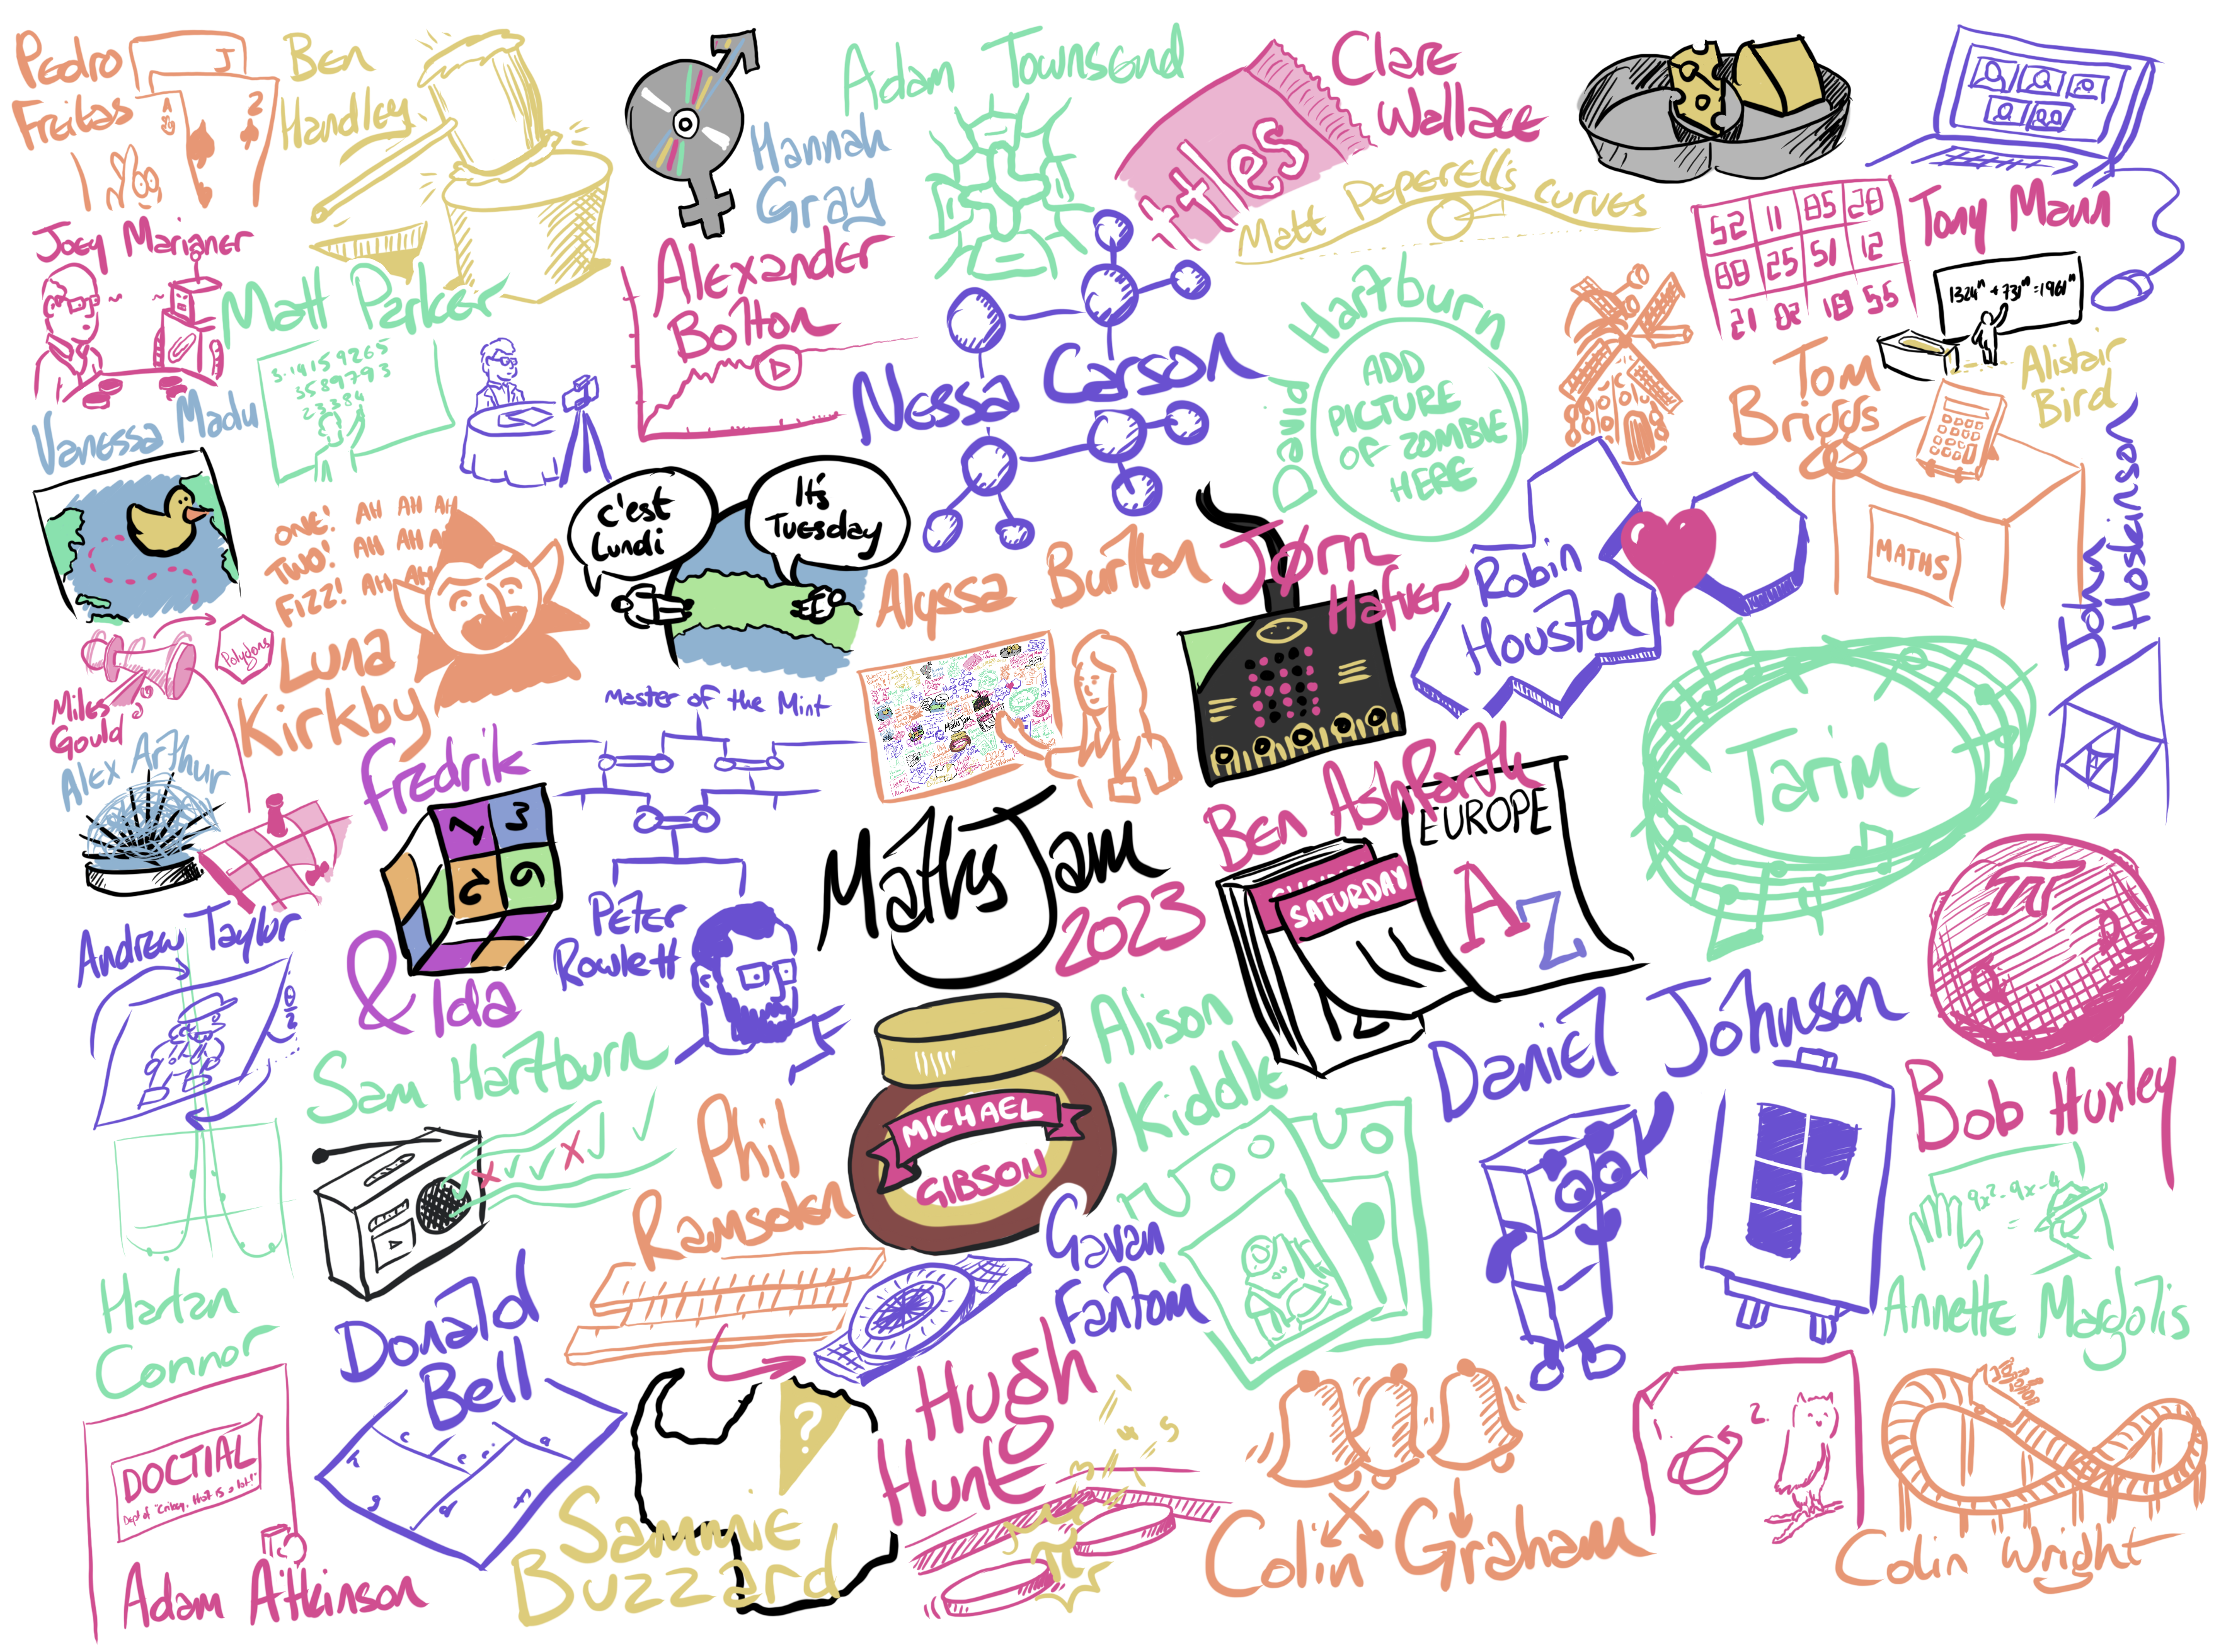 Pedro
Freitas
J
A
2
Ben
Handley
Hannah
Gray
Adam Townsend
ttles
Clare
Wallace
Matt Peperell's curves
52 11 85 28
88 25 51 12
21 82 18 55
Tony Mann
1324ⁿ + 731ⁿ = 1961ⁿ
Alistair
Bird
Joey Marianer
Matt Parker
3.14159265
3589793
23384
Alexander
Bolton
Nessa Carson
David Hartburn
ADD
PICTURE
OF ZOMBIE
HERE
Tom
Briggs
MATHS
John
Hoskinson
Vanessa Madu
ONE! AH AH AH
TWO! AH AH A
FIZZ! AH AH
Luna
Kirkby
c'est
Lundi
It's
Tuesday
Alyssa Burlton
Jørn
Hafver
Robin
Houston
Polygons
Miles
Gould
Alex Arthur
Master of the Mint
Peter
Rowlett
Fredrik
1 3
5 6
& Ida
MathsJam
2023
Ben Ashforth
SUNDAY
SATURDAY
EUROPE
A
Z
Tarim
π
Bob Huxley
Andrew Taylor
θ/2
Sam Hartburn
Phil
Ramsden
MICHAEL
GIBSON
Alison
Kiddle
Daniel Johnson
9x²-9x-4
=
Annette Margolis
Harlan
Connor
Donald
Bell
Gavan
Fantom
DOCTIAL
Adam Atkinson
?
Sammie
Buzzard
Hugh
Hunt
Colin Graham
1.
2.
Colin Wright